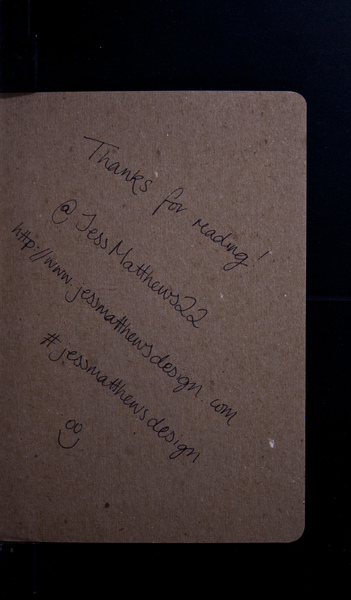 Thanks for reading!
@JessMatthews22
http://www.jessmatthewsdesign.com
#jessmatthewsdesign